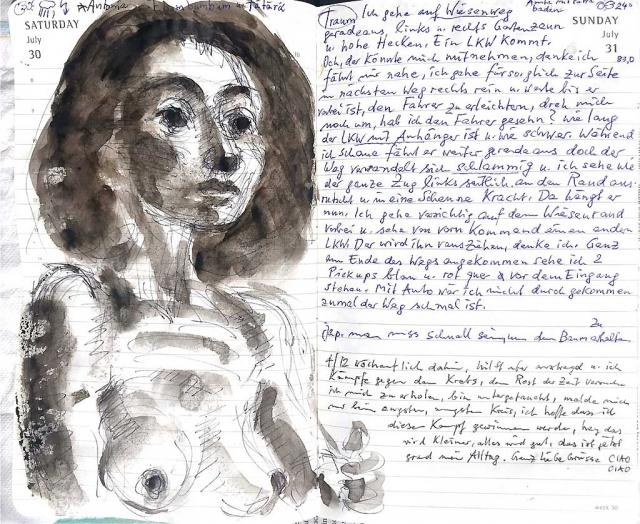 SATURDAY
July
30
SUNDAY
July
31
Traum Ich gehe auf Wiesenweg
geradeaus, links u. rechts Gartenzaun
u hohe Hecken. Ein LKW kommt.
Och, der könnte mich mitnehmen, denke ich
fährt mir nahe, ich gehe fürsorglich zur Seite
in nächsten Weg rechts rein u. warte bis er
vorbei ist, den Fahrer zu erleichtern, dreh mich
noch um, hab ich den Fahrer gesehn? wie lang
der LKW mit Anhänger ist u. wie schwer. Während
ich schaue fährt er weiter geradeaus doch der
Weg verwandelt sich schlammig u. ich sehe wie
der ganze Zug links seitlich an den Rand aus
rutscht u in eine Scheune kracht. Da hängt er
nun. Ich gehe vorsichtig auf dem Wiesenrand
vorbei u. sehe von vorn kommend einen andern
LKW. Der wird ihn rausziehen, denke ich. Ganz
am Ende des Wegs angekommen sehe ich 2
Pickups blau u. rot quer vor dem Eingang
stehen. Mit Auto wär ich nicht durchgekommen
zumal der Weg schmal ist.
man muss schnell sein um den Baum
4/12 wöchentlich dahin, u. ich
kämpfe gegen den Krebs, den Rest der Zeit
ich mich zu erholen, bin untergetaucht, melde mich
nur im engsten, engsten Kreis, ich hoffe dass ich
diesen Kampf gewinnen werde, hey das
wird Kleiner, alles wird gut, das ist jetzt
grad mein Alltag. Ganz liebe Grüsse CIAO
CIAO